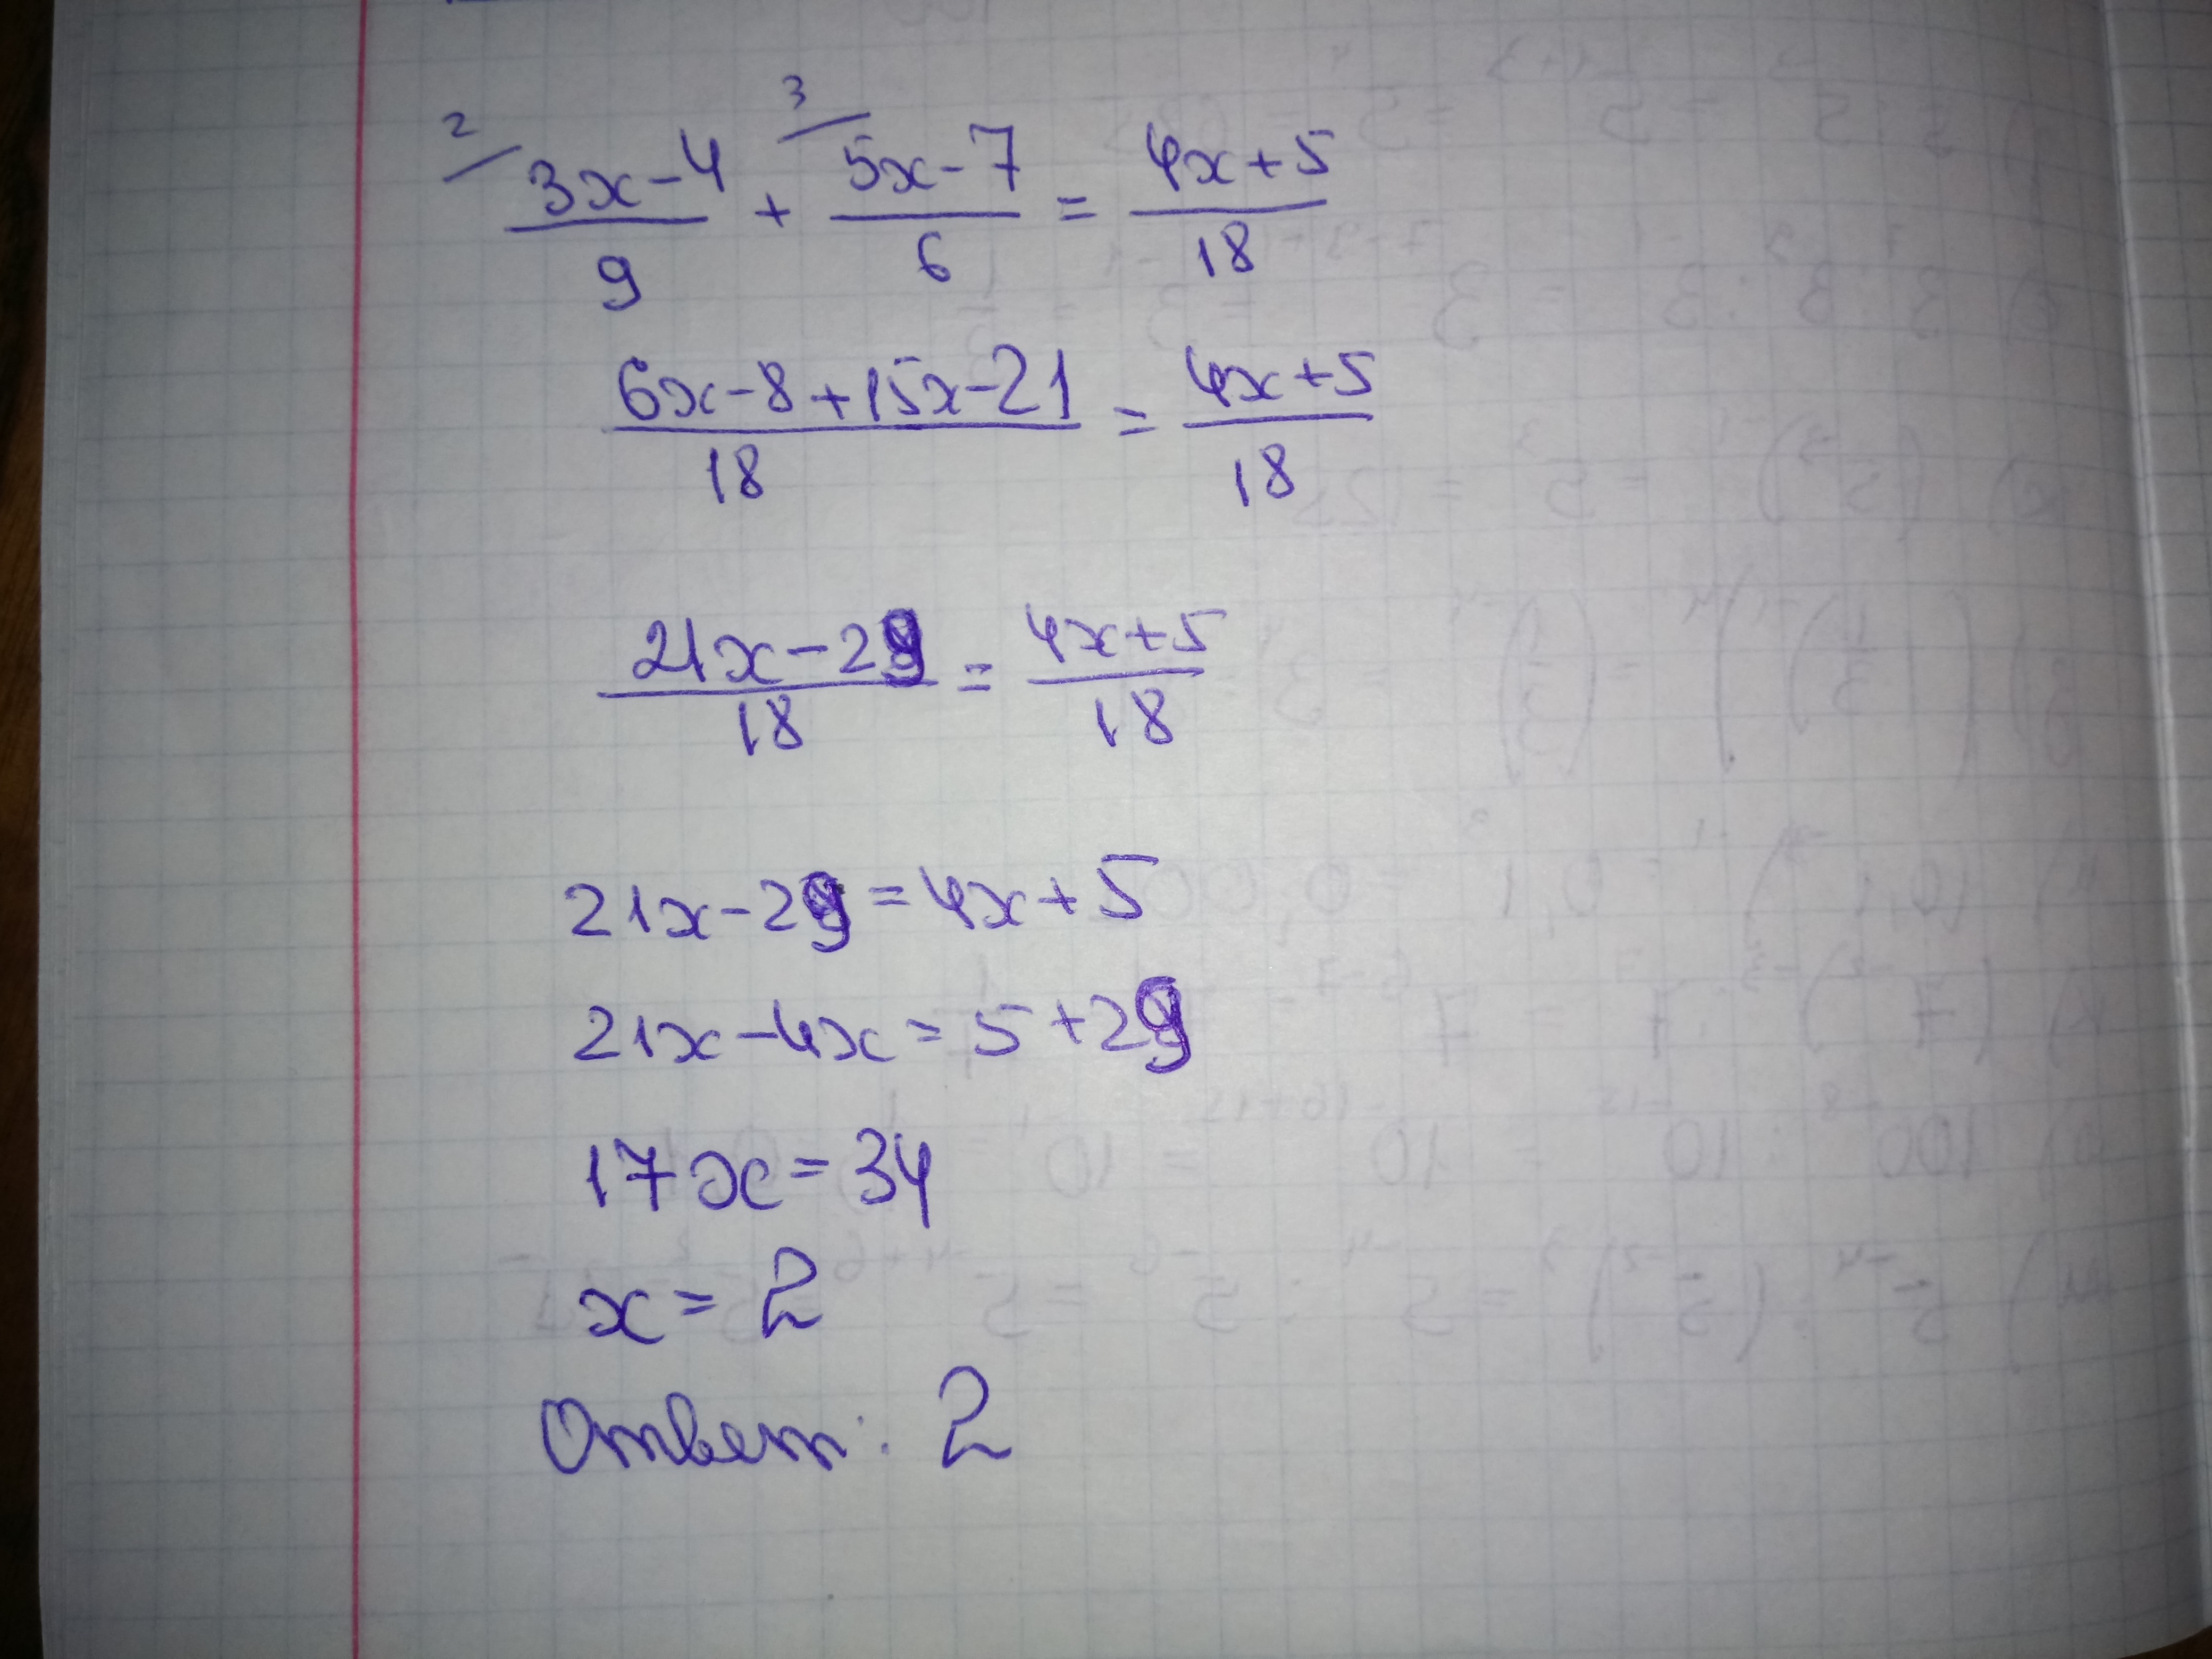 2/ (3x-4)/9 + 3/ (5x-7)/6 = (4x+5)/18
(6x-8+15x-21)/18 = (4x+5)/18
(21x-29)/18 = (4x+5)/18
21x-29=4x+5
21x-4x=5+29
17x=34
x=2
Ответ: 2